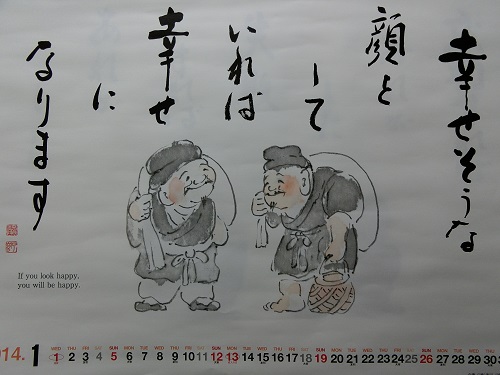 幸せそうな
顔と
して
いれば
幸せ
に
なります
If you look happy,
you will be happy.
014. 1
WED THU FRI SAT SUN MON TUE WED THU FRI SAT SUN MON TUE WED THU FRI SAT SUN MON TUE WED THU FRI SAT SUN MON TUE WED THU
1 2 3 4 5 6 7 8 9 10 11 12 13 14 15 16 17 18 19 20 21 22 23 24 25 26 27 28 29 30